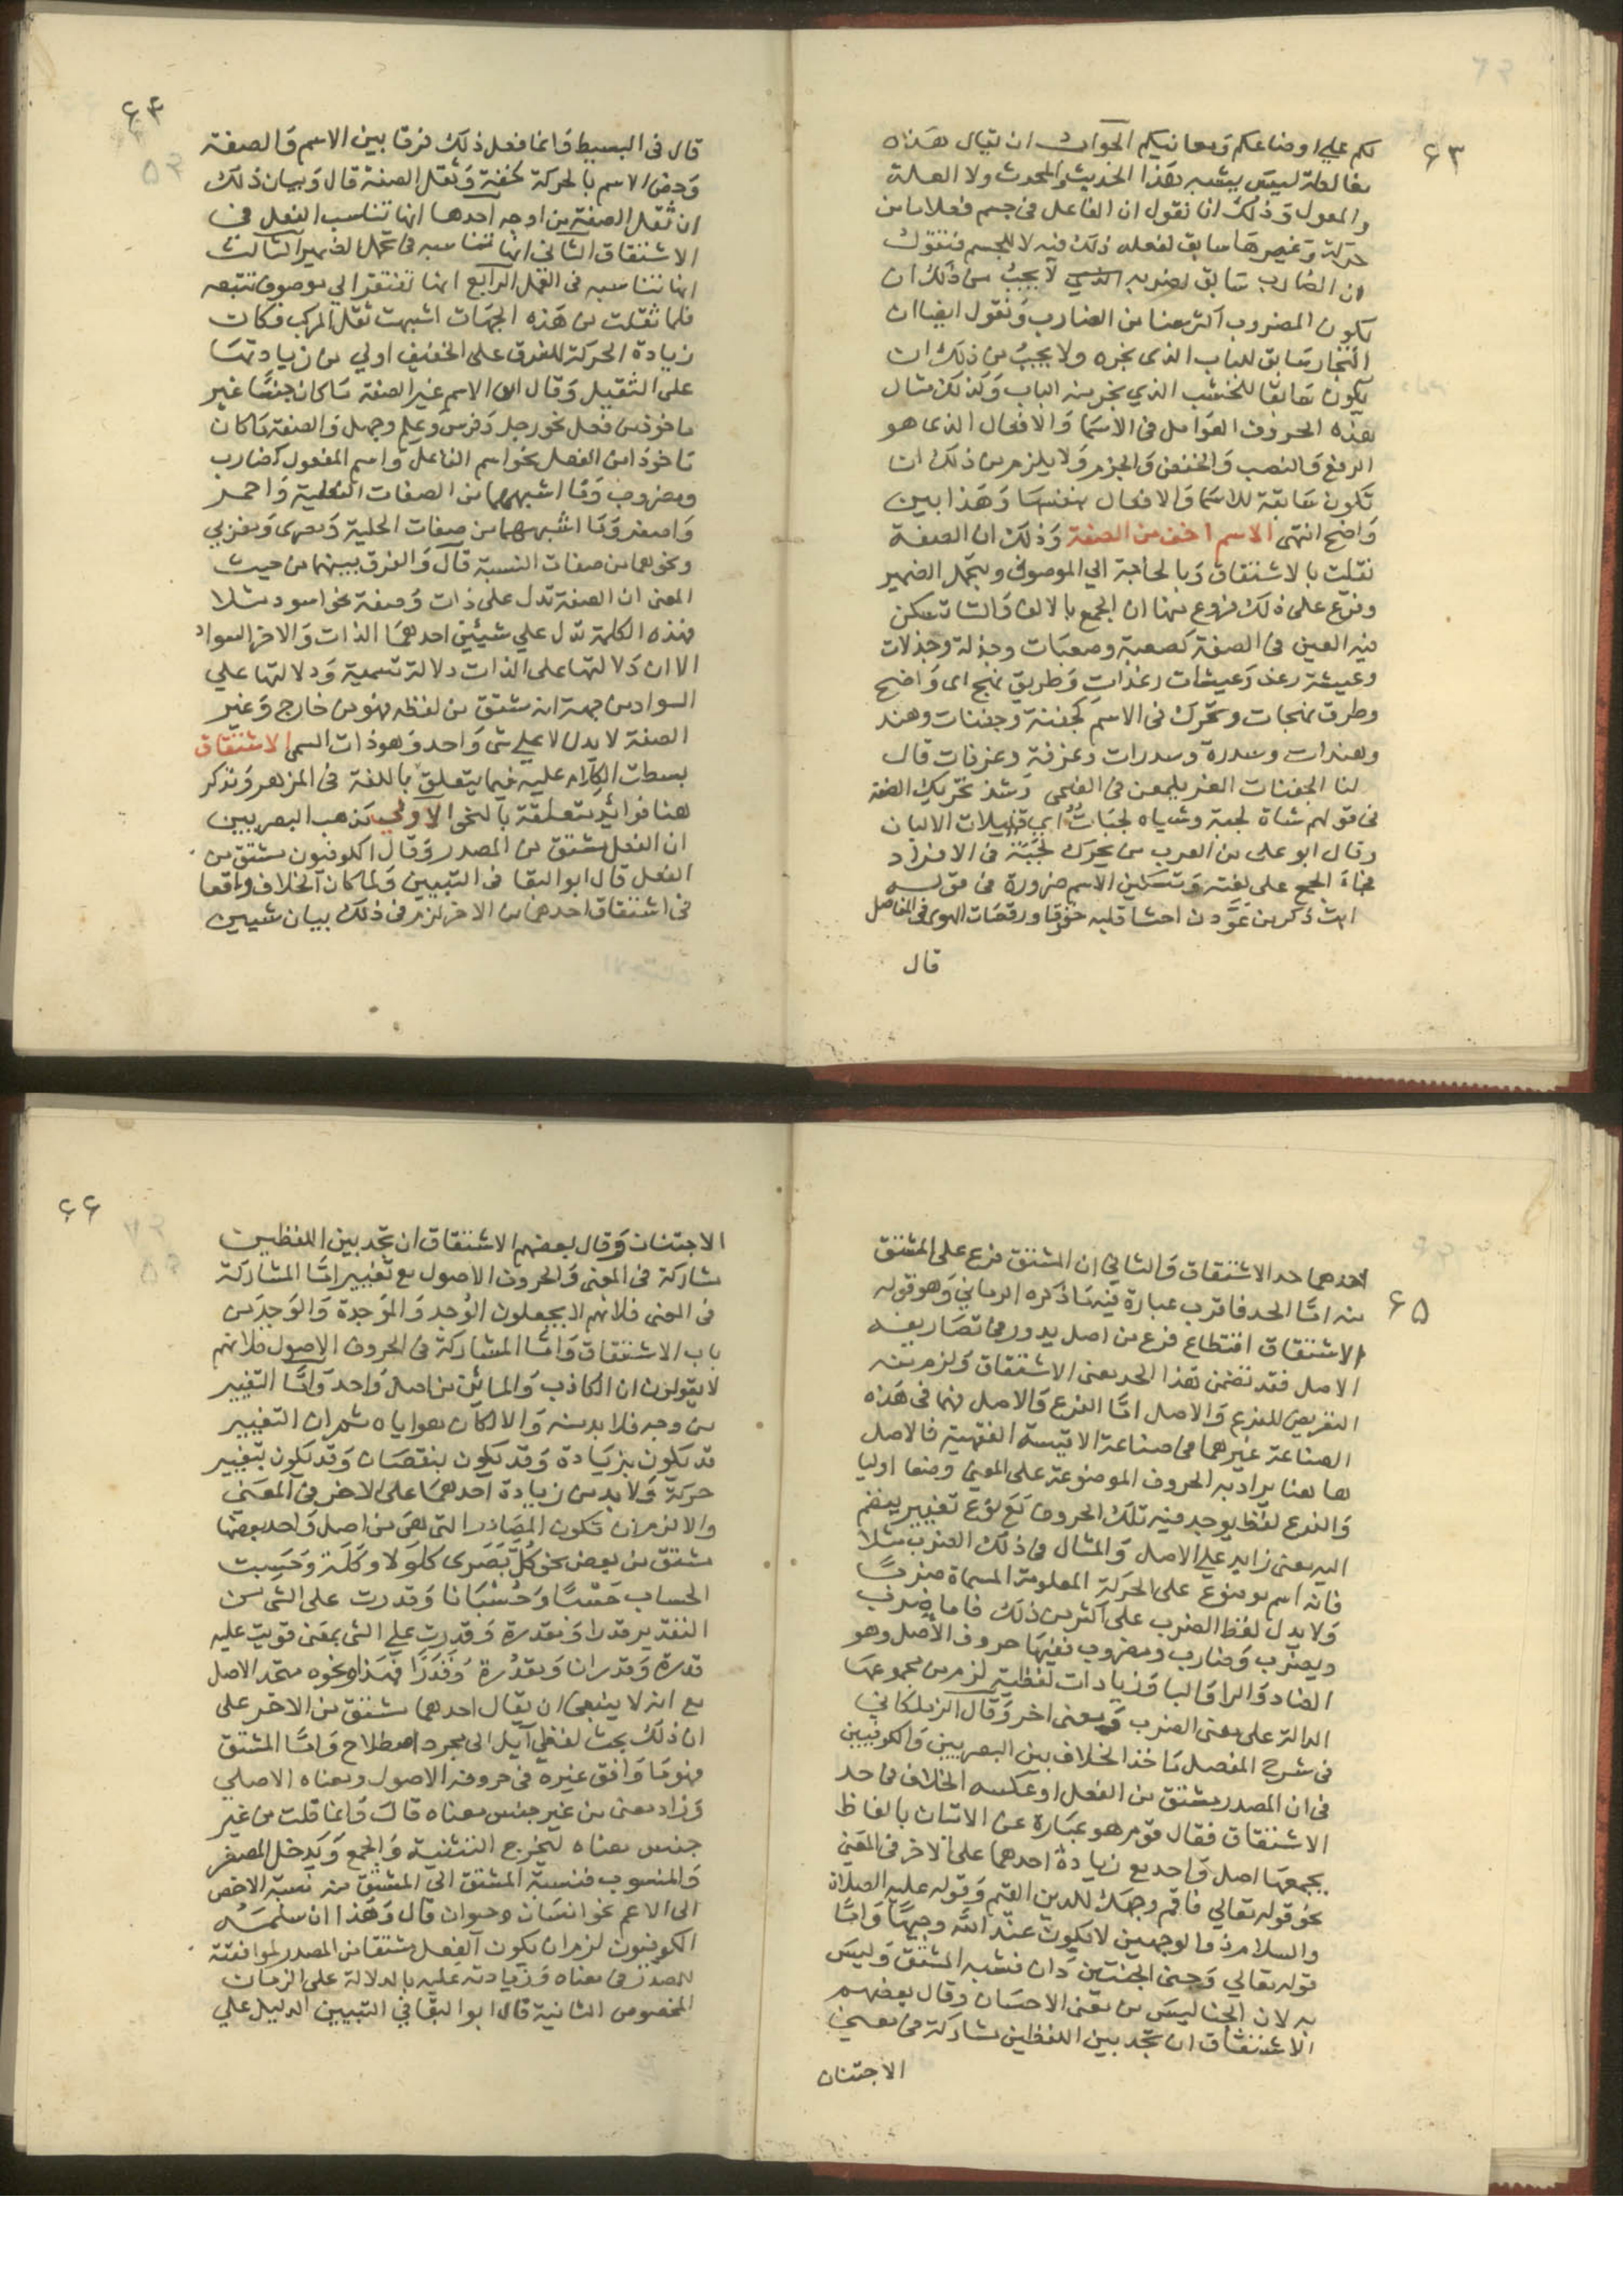 ٦٣
لكم على اوضاعكم ومعانيكم الجواب ان يقال هذه
مغالطة ليس يشبه هذا الحديث والمحدث ولا العلة
والمعول وذلك انا نقول ان الفاعل في جسم فعلا ما من
حركة وغيرها سابق لفعله ذلك فيه لا للجسم فنقول
ان الضارب سابق لضربه الذي لا يجب من ذلك ان
يكون المضروب اكثر معنا من الضارب ونقول ايضا ان
النجار سابق للباب الذي نجره ولا يجب من ذلك ان
يكون سابقا للخشب الذي نجر منه الباب وكذلك مثال
هذه الحروف العوامل في الاسما والافعال الذي هو
الرفع والنصب والخفض والجزم ولا يلزم من ذلك ان
تكون سابقة للاسما والافعال نفسها وهذا بين
واضح انتهى الاسم اخف من الصفة وذلك ان الصفة
ثقلت بالاشتقاق وبالحاجة الي الموصوف وبتحمل الضمير
وفرع على ذلك فروع منها ان الجمع بالالف والتا تسكن
فيه العين في الصفة كصعبة وصعبات وجذلة وجذلات
وعيشة رغد وعيشات رغدات وطريق نهج اى واضح
وطرق نهجات وتحرك في الاسم كجفنة وجفنات وهند
وهندات وسدرة وسدرات وغرفة وغرفات قال
لنا الجفنات الغر يلمعن في الضحى وشذ تحريك الصفة
في قولهم شاة لجبة وشياه لجبات اي قليلات الالبان
وقال ابو على من العرب من يحرك لجبة في الافراد
فجاء الجمع على لغته وتسكين الاسم ضرورة في قوله
ابت ذكر من عودن احشا قلبه خفوقا ورقصات الهوى في المفاصل
قال
٦٤
قال في البسيط وانما فعل ذلك فرقا بين الاسم والصفة
وخص الاسم بالحركة لخفته وثقل الصفة قال وبيان ذلك
ان ثقل الصفة من اوجه احدها انها تناسب الفعل في
الاشتقاق الثاني انها تناسبه في تحمل الضمير الثالث
انها تناسبه في العمل الرابع انها تفتقر الي موصوف تتبعه
فلما ثقلت من هذه الجهات اشبهت ثقل المركب فكان
زيادة الحركة للفرق على الخفيف اولي من زيادتها
على الثقيل وقال الاسم غير الصفة ما كان جنسا غير
ماخوذ من فعل نحو رجل وفرس وعلم وجهل والصفة ما كان
ماخوذا من الفعل نحو اسم الفاعل واسم المفعول كضارب
ومضروب وما اشبههما من الصفات الفعلية واحمر
واصفر وما اشبههما من صفات الحلية وبصرى ومغربي
ونحوهما من صفات النسبة قال والفرق بينهما من حيث
المعنى ان الصفة تدل على ذات وصفة نحو اسود مثلا
فهذه الكلمة تدل علي شيئين احدهما الذات والاخر السواد
الا ان دلالتها على الذات دلالة تسمية ودلالتها علي
السواد من جهة انه مشتق من لفظه فهو من خارج وغير
الصفة لا يدل الا علي شي واحد وهو ذات المسمى الاشتقاق
بسطت الكلام عليه فيما يتعلق باللغة في المزهر ونذكر
هنا فوائد متعلقة بالنحو الاولى مذهب البصريين
ان الفعل مشتق من المصدر وقال الكوفيون مشتق من
الفعل قال ابو البقا في التبيين ولما كان الخلاف واقعا
في اشتقاق احدهما من الاخر لزم في ذلك بيان شيين
٦٥
احدهما حد الاشتقاق والثاني ان المشتق فرع على المشتق
منه اما الحد فاقرب عبارة فيه ما ذكره الرماني وهو قوله
الاشتقاق اقتطاع فرع من اصل يدور في تصاريفه
الاصل فقد تضمن هذا الحد معنى الاشتقاق ولزم منه
التعريض للفرع والاصل اما الفرع والاصل فهما في هذه
الصناعة غيرهما في صناعة الاقيسة الفقهية فالاصل
ها هنا يراد به الحروف الموضوعة على المعنى وضعا اوليا
والفرع لفظ يوجد فيه تلك الحروف مع نوع تغيير ينضم
اليه معنى زايد علي الاصل والمثال في ذلك الضرب مثلا
فانه اسم موضوع على الحركة المعلومة المسماة ضربا
ولا يدل لفظ الضرب على اكثر من ذلك فاما ضرب
ويضرب وضارب ومضروب ففيها حروف الاصل وهو
الضاد والرا والبا وزيادات لفظية لزم من مجموعها
الدالة على معنى الضرب ومعنى اخر وقال الزملكاني
في شرح المفصل ماخذ الخلاف بين البصريين والكوفيين
في ان المصدر مشتق من الفعل او عكسه الخلاف في حد
الاشتقاق فقال قوم هو عبارة عن الاتيان بالفاظ
يجمعها اصل واحد مع زيادة احدهما على الاخر في المعني
نحو قوله تعالي فاقم وجهك للدين القيم وقوله عليه الصلاة
والسلام ذو الوجهين لا يكون عند الله وجيها واما
قوله تعالي وجنى الجنتين دان فشبه المشتق وليس
به لان الجنا ليس من معنى الاجتنان وقال بعضهم
الاشتقاق ان تجد بين اللفظين مشاركة في معنى
الاجتنان
٦٦
الاجتنان وقال بعضهم الاشتقاق ان تجد بين اللفظين
مشاركة في المعنى والحروف الاصول مع تغيير اما المشاركة
في المعنى فلانهم لا يجعلون الوجد والموجدة والوجد من
باب الاشتقاق واما المشاركة في الحروف الاصول فلانهم
لا يقولون ان الكاذب والمائن من اصل واحد واما التغيير
من وجه فلا بد منه والا لكان هو اياه ثم ان التغيير
قد يكون بزيادة وقد يكون بنقصان وقد يكون بتغيير
حركة ولا بد من زيادة احدهما على الاخر في المعنى
والا لزم ان تكون المصادر التي هي من اصل واحد بعضها
مشتق من بعض نحو كل بصرى كلولا وكلة وحسبت
الحساب حسبا وحسبانا وقدرت على الشي من
التقدير قدرا وقدرة وقدرت علي الشي بمعنى قويت عليه
قدرة وقدرانا ومقدرة وقدرا فهذا ونحوه متحد الاصل
مع انه لا ينبغي ان يقال احدهما مشتق من الاخر على
ان ذلك بحث لفظي آيل الى مجرد اصطلاح واما المشتق
فهو ما وافق غيره في حروفه الاصول ومعناه الاصلي
وزاد معنى من غير جنس معناه قال وانما قلت من غير
جنس معناه ليخرج التثنية والجمع ويدخل المصغر
والمنسوب فنسبة المشتق الي المشتق منه نسبة الاخص
الى الاعم نحو انسان وحيوان قال وهذا ان سلمه
الكوفيون لزم ان يكون الفعل مشتقا من المصدر لموافقته
للمصدر في معناه وزيادته عليه بالدلالة على الزمان
المخصوص الثانية قال ابو البقا في التبيين الدليل علي